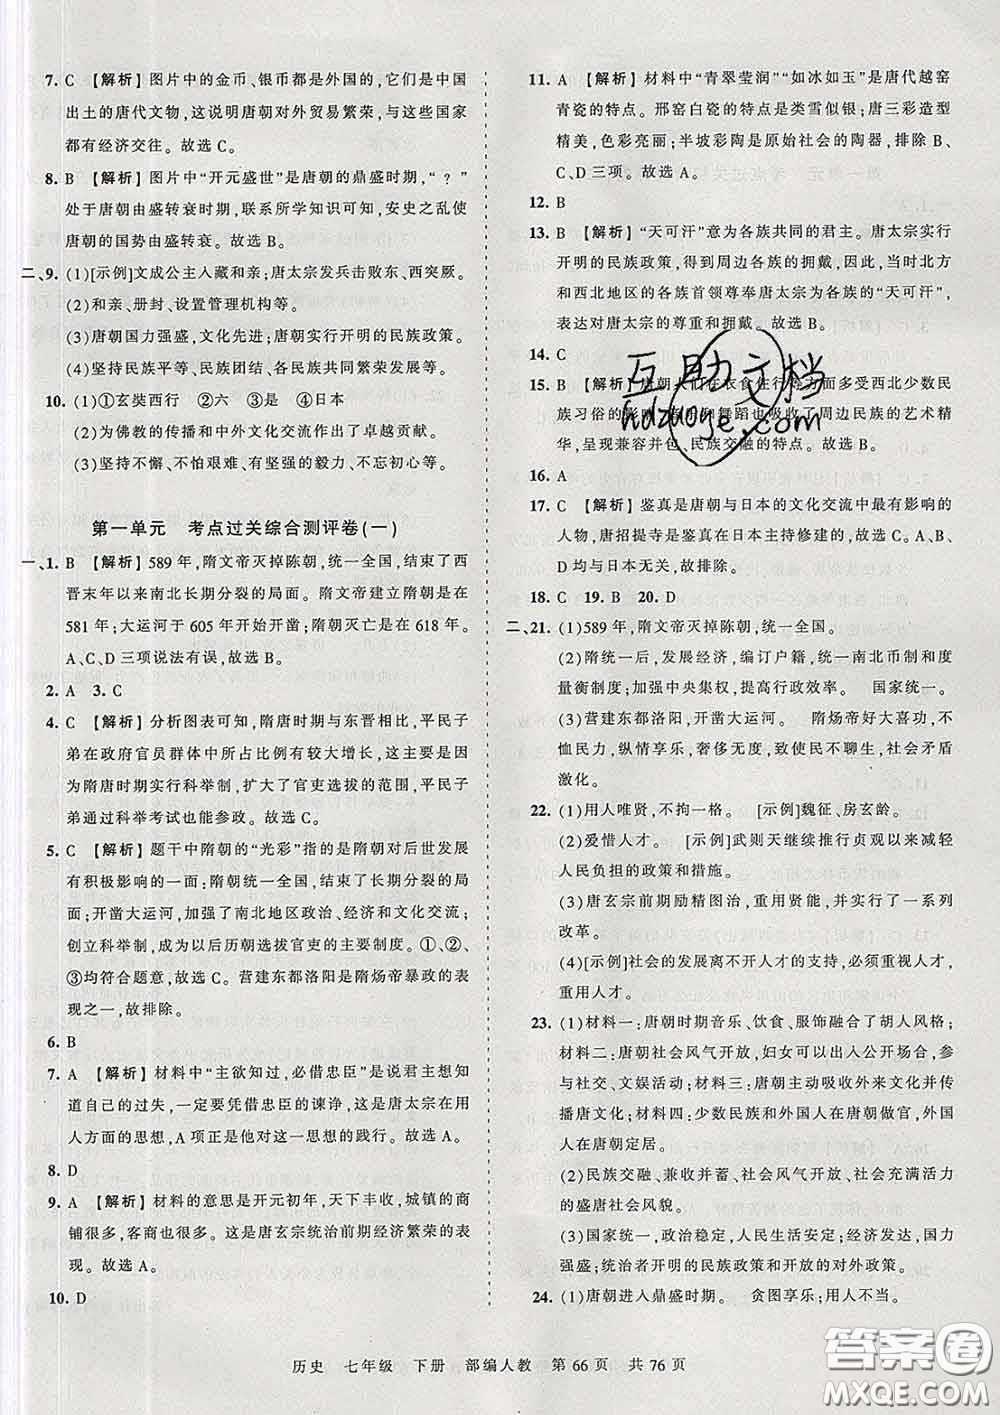 7. C 【解析】图片中的金币、银币都是外国的,它们是中国
出土的唐代文物,这说明唐朝对外贸易繁荣,与这些国家
都有经济交往。故选 C。
8. B 【解析】图片中“开元盛世”是唐朝的鼎盛时期,“?”
处于唐朝由盛转衰时期,联系所学知识可知,安史之乱使
唐朝的国势由盛转衰。故选 B。
二、9. (1)[示例]文成公主入藏和亲;唐太宗发兵击败东、西突厥。
(2)和亲、册封、设置管理机构等。
(3)唐朝国力强盛,文化先进;唐朝实行开明的民族政策。
(4)坚持民族平等、民族团结、各民族共同繁荣发展等。
10. (1)①玄奘西行 ②六 ③是 ④日本
(2)为佛教的传播和中外文化交流作出了卓越贡献。
(3)坚持不懈、不怕艰难、有坚强的毅力、不忘初心等。
第一单元 考点过关综合测评卷(一)
一、1. B 【解析】589 年,隋文帝灭掉陈朝,统一全国,结束了西
晋末年以来南北长期分裂的局面。隋文帝建立隋朝是在
581 年;大运河于 605 年开始开凿;隋朝灭亡是在 618 年。
A、C、D 三项说法有误,故选 B。
2. A 3. C
4. C 【解析】分析图表可知,隋唐时期与东晋相比,平民子
弟在政府官员群体中所占比例有较大增长,这主要是因
为隋唐时期实行科举制,扩大了官吏选拔的范围,平民子
弟通过科举考试也能参政。故选 C。
5. C 【解析】题干中隋朝的“光彩”指的是隋朝对后世发展
有积极影响的一面:隋朝统一全国,结束了长期分裂的局
面;开凿大运河,加强了南北地区政治、经济和文化交流;
创立科举制,成为以后历朝选拔官吏的主要制度。①、②、
③均符合题意,故选 C。营建东都洛阳是隋炀帝暴政的表
现之一,故排除。
6. B
7. A 【解析】材料中“主欲知过,必借忠臣”是说君主想知
道自己的过失,一定要凭借忠臣的谏诤,这是唐太宗在用
人方面的思想,A 项正是他对这一思想的践行。故选 A。
8. D
9. A 【解析】材料的意思是开元初年,天下丰收,城镇的商
铺很多,客商也很多。这是唐玄宗统治前期经济繁荣的表
现。故选 A。
10. D
11. A 【解析】材料中“青翠莹润”“如冰如玉”是唐代越窑
青瓷的特点。邢窑白瓷的特点是类雪似银;唐三彩造型
精美,色彩亮丽;半坡彩陶是原始社会的陶器,排除 B、
C、D 三项。故选 A。
12. B
13. B 【解析】“天可汗”意为各族共同的君主。唐太宗实行
开明的民族政策,得到周边各族的拥戴,因此,当时北方
和西北地区的各族首领尊奉唐太宗为各族的“天可汗”,
表达对唐太宗的尊重和拥戴。故选 B。
14. C
15. B 【解析】唐朝人们在衣食住行等方面多受西北少数民
族习俗的影响,音乐和舞蹈也吸收了周边民族的艺术精
华,呈现兼容并包、民族交融的特点。故选 B。
16. A
17. C 【解析】鉴真是唐朝与日本的文化交流中最有影响的
人物,唐招提寺是鉴真在日本主持修建的,故选 C。A、B、
D 均与日本无关,故排除。
18. C 19. B 20. D
二、21. (1)589 年,隋文帝灭掉陈朝,统一全国。
(2)隋统一后,发展经济,编订户籍,统一南北币制和度
量衡制度;加强中央集权,提高行政效率。 国家统一。
(3)营建东都洛阳,开凿大运河。 隋炀帝好大喜功,不
恤民力,纵情享乐,奢侈无度,致使民不聊生,社会矛盾
激化。
22. (1)用人唯贤,不拘一格。 [示例]魏征、房玄龄。
(2)爱惜人才。 [示例]武则天继续推行贞观以来减轻
人民负担的政策和措施。
(3)唐玄宗前期励精图治,重用贤能,并实行了一系列
改革。
(4)[示例]社会的发展离不开人才的支持,必须重视人才,
重用人才。
23. (1)材料一:唐朝时期音乐、饮食、服饰融合了胡人风格;
材料二:唐朝社会风气开放,妇女可以出入公开场合,参
与社交、文娱活动;材料三:唐朝主动吸收外来文化并传
播唐文化;材料四:少数民族和外国人在唐朝做官,外国
人在唐朝定居。
(2)民族交融、兼收并蓄、社会风气开放、社会充满活力
的盛唐社会风貌。
(3)国家统一,政治稳定,民族团结;经济发达,国力强
盛;统治者开明的民族政策和开放的对外政策。
24. (1)唐朝进入鼎盛时期。 贪图享乐;用人不当。
历史 七年级 下册 部编人教 第 66 页 共 76 页
互助文档
hdzuoye.com
答案圈
MXQE.COM